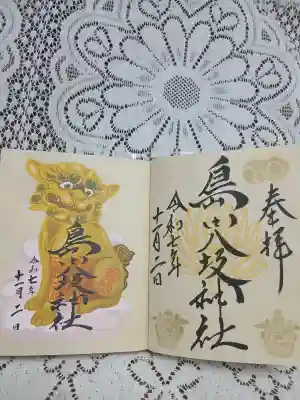 奉拝
烏山八坂神社
令和七年
十一月二日
烏山八坂神社
令和七年
十一月二日